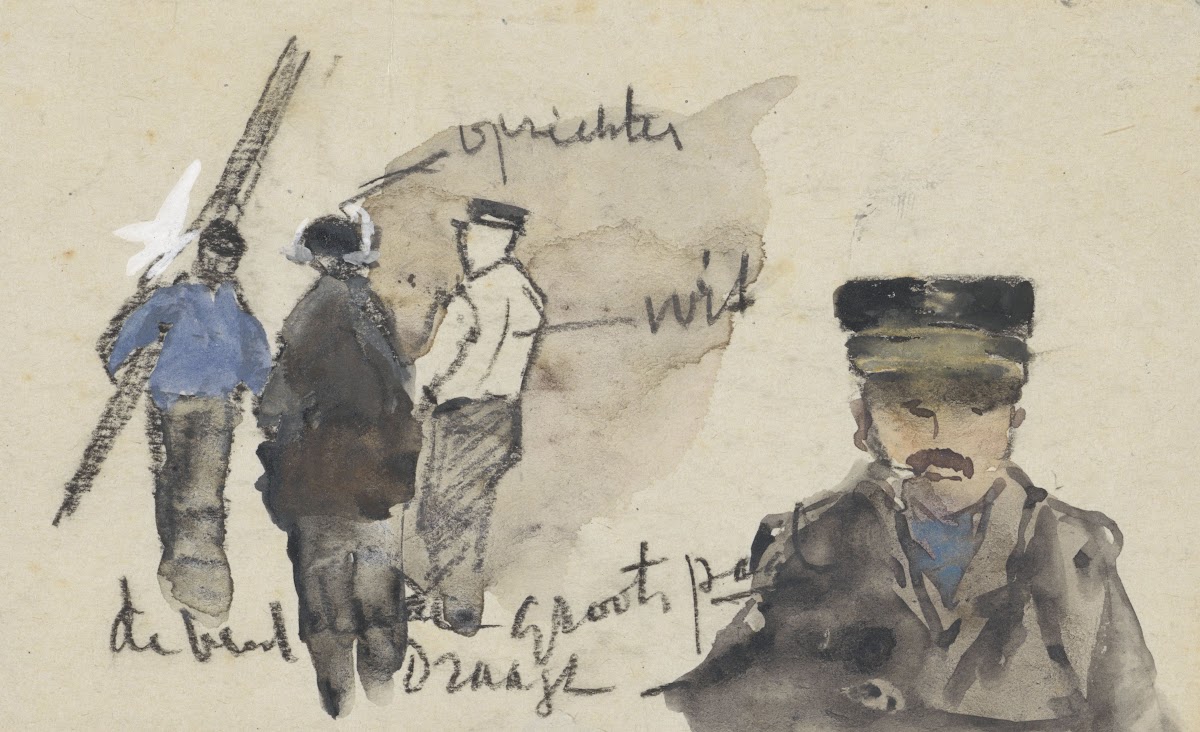 oprichter
wit
de
Grootpa
Draagt